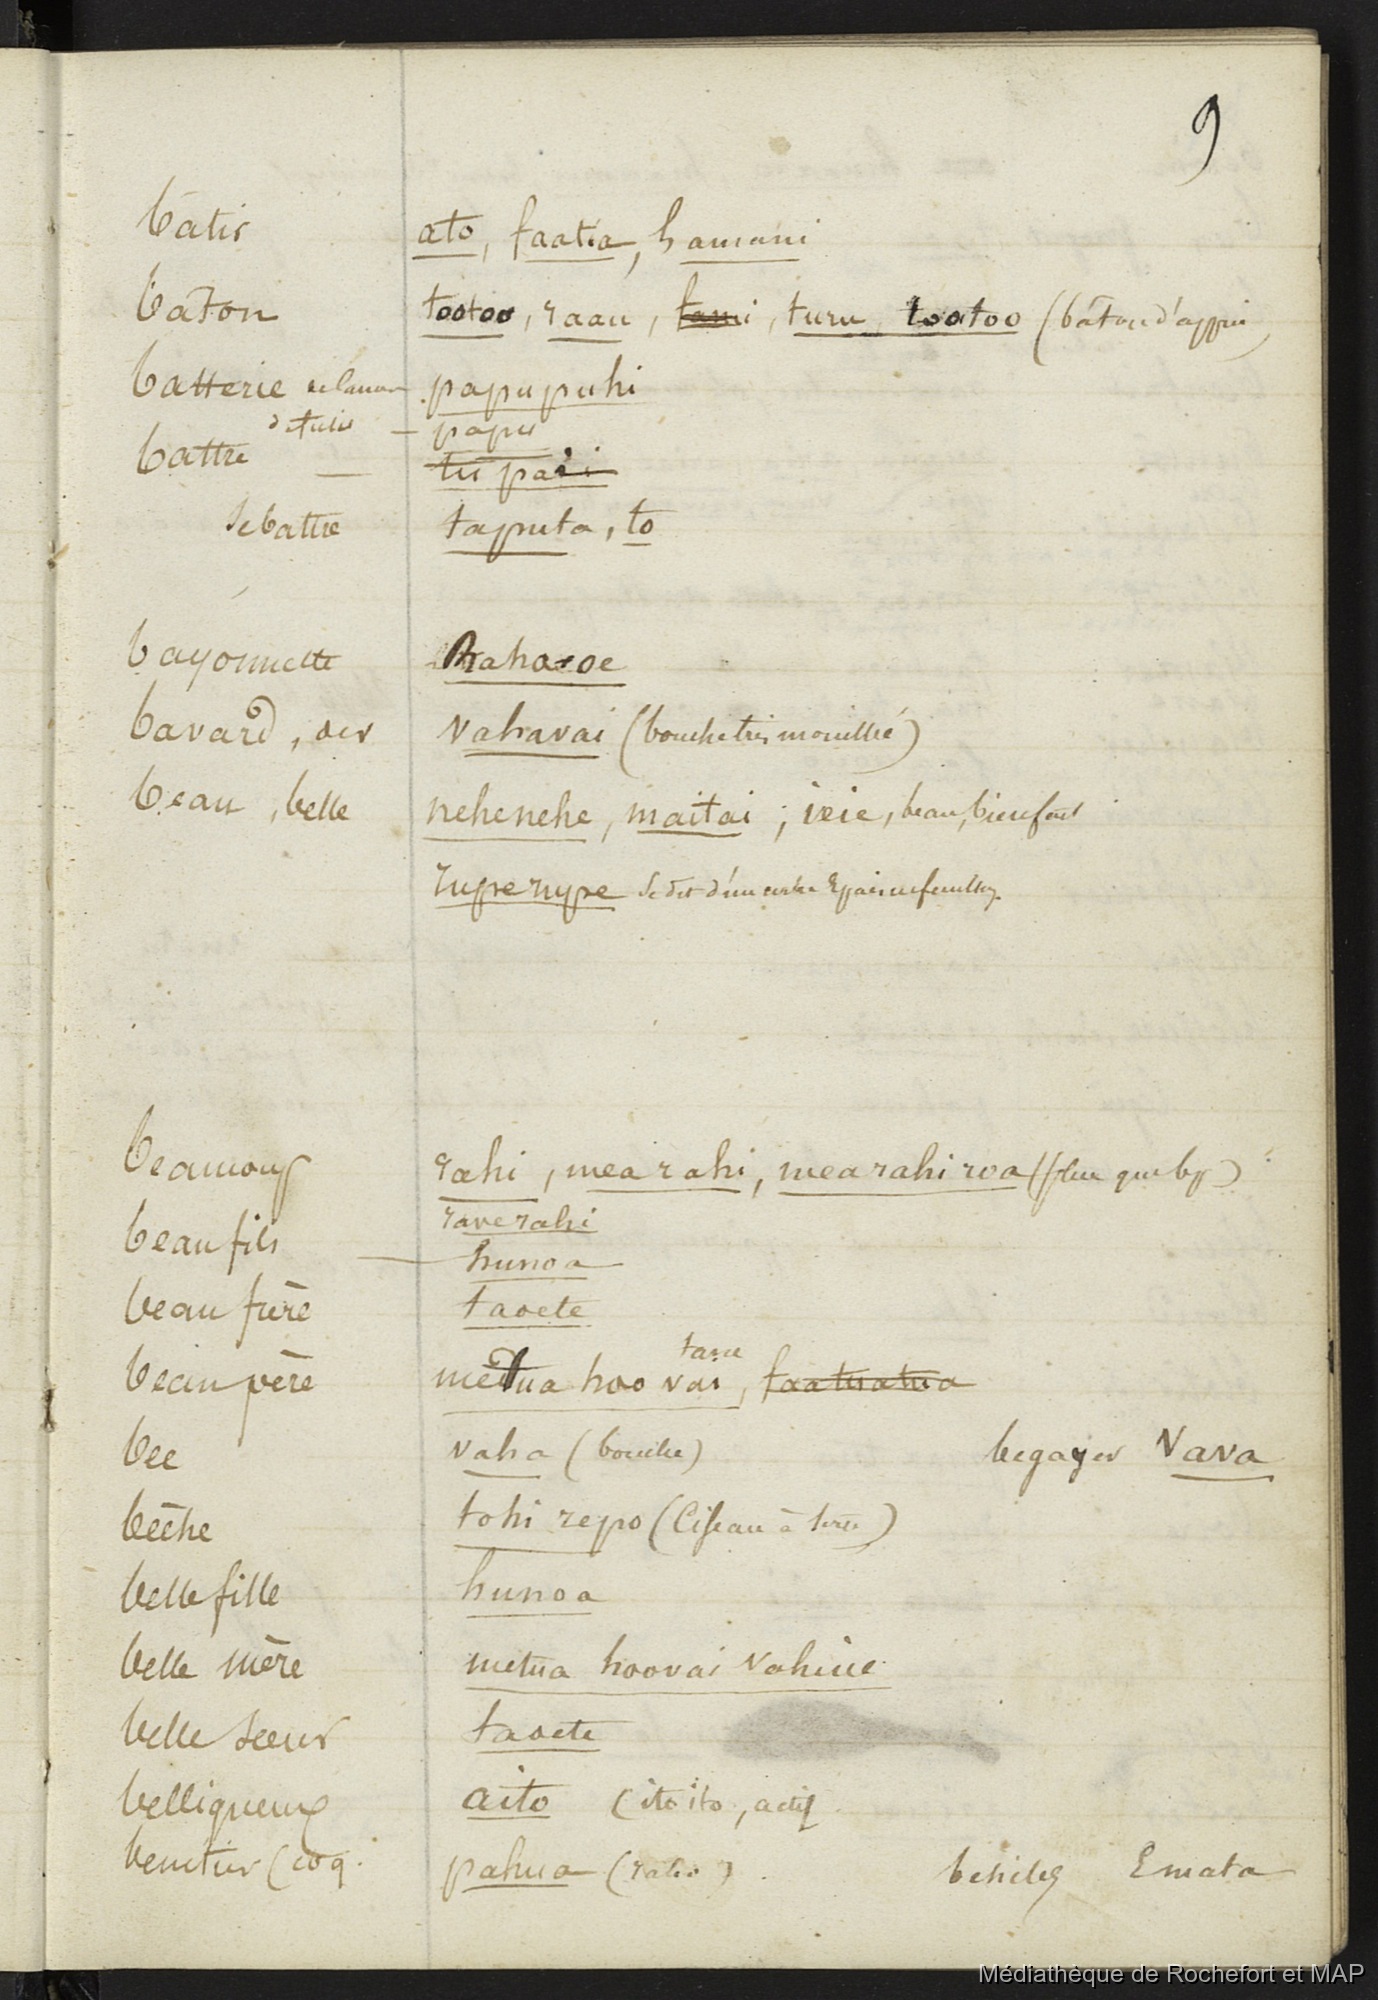 9
batir ato, faatia, hamani
baton tootoo, raau, tami, turu tootoo (bâton d'appui)
batterie de canon papu puhi
de fusil — papu
battre — tu pai
se battre taputa, to
bayonnette Rahoroe
bavard, der vahavai (bouche très mouillée)
beau, belle nehenehe, maitai; ieie, beau, bien fait
ruperupe se dit d'un arbre Epais en feuilles
beaucoup rahi, mea rahi, mea rahi roa (plus que bp)
rave rahi
beau fils — hunoa
beau frère taoete
tane
beau père metua hoo vai, faatuatua
bec vaha (bouche) begayer Vava
bèche tohi repo (Ciseau à terre)
belle fille hunoa
belle mère metua hoovai Vahine
belle soeur taoete
belliqueux aito (itoito, actif
benitier (coq. pahua (rahi)
Emata
Médiathèque de Rochefort et MAP